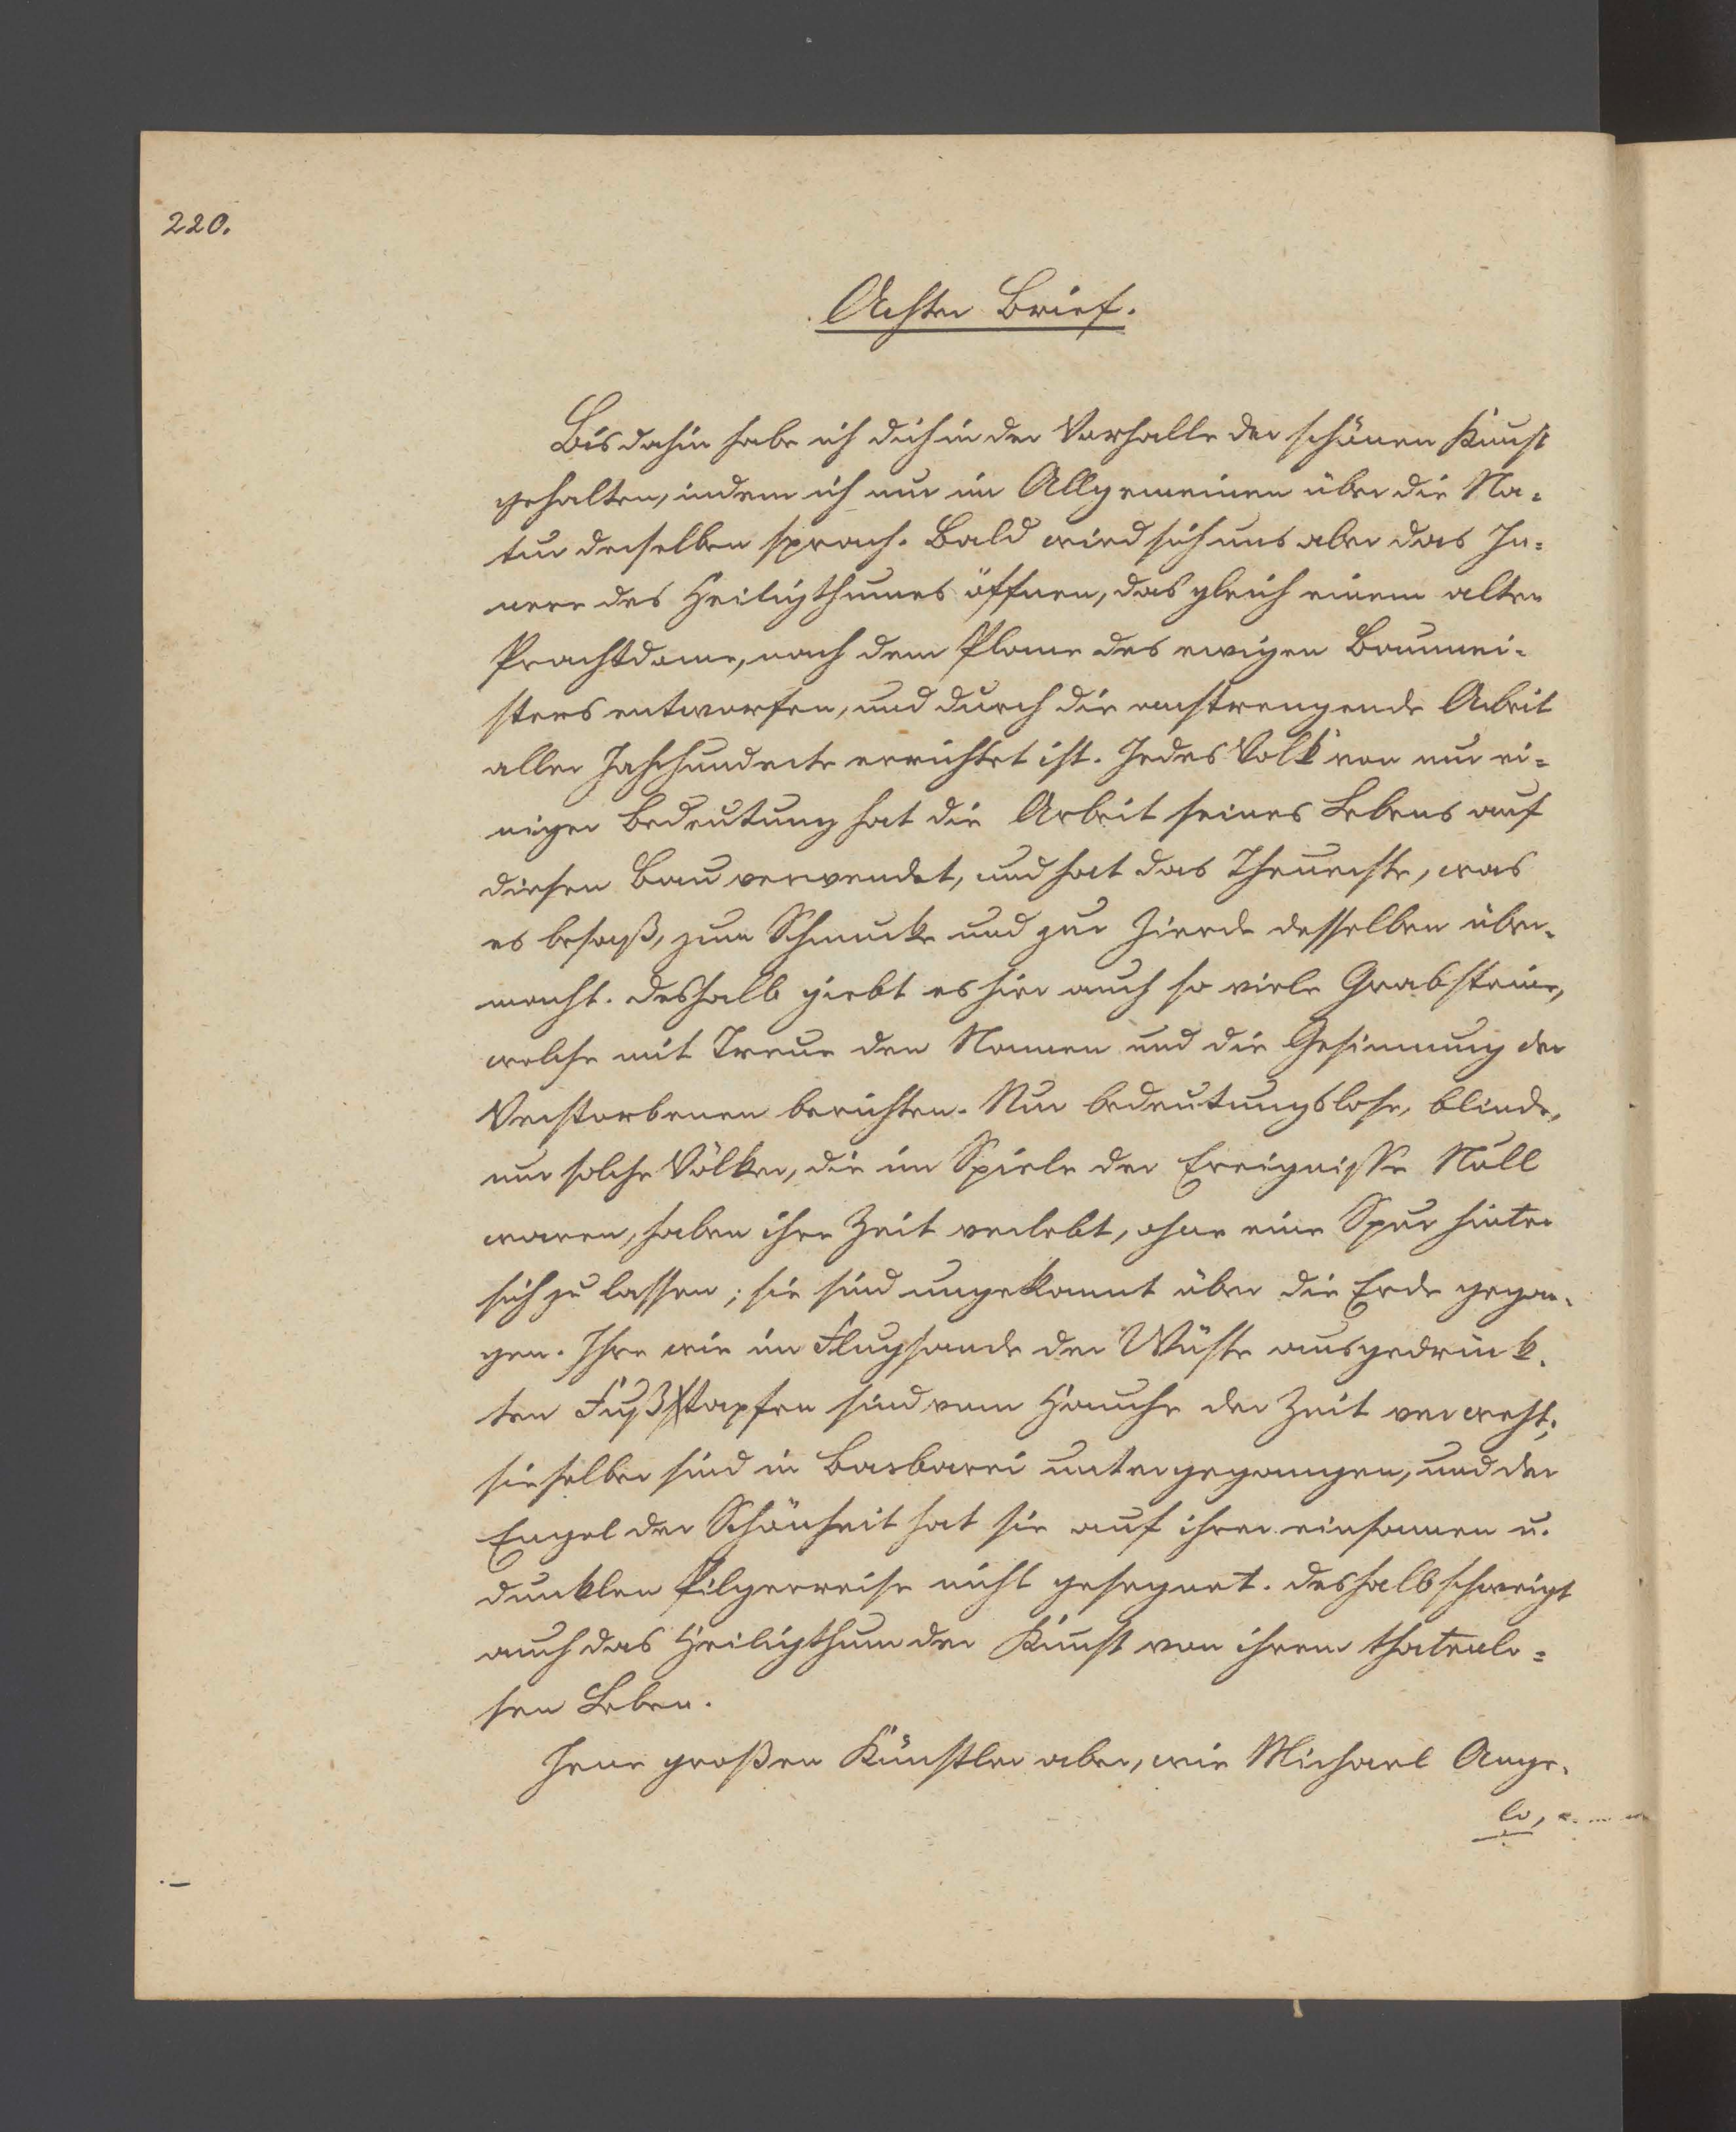 220.
Achter Brief.
Bis dahin habe ich dich in der Vorhalle der schönen Kunst
gehalten, indem ich nur im Allgemeinen über die Na-
tur derselben sprach. Bald wird sich uns aber das In-
nere des Heiligthumes öffnen, das gleich einem alten
Prachtdome, nach dem Plane des ewigen Baumei-
sters entworfen, und durch die anstrengende Arbeit
aller Jahrhunderte errichtet ist. Jedes Volk von nur ei-
niger Bedeutung hat die Arbeit seines Lebens auf
diesen Bau verwendet, und hat das Theuerste, was
es besaß, zum Schmucke und zur Zierde desselben über-
macht. Deshalb giebt es hier auch so viele Grabsteine,
welche mit Treue den Namen und die Gesinnung der
Verstorbenen berichten. Nur bedeutungslose, blinde,
nur solche Völker, die im Spiele der Ereignisse Null
waren, haben ihre Zeit verlebt, ohne eine Spur hinter
sich zu lassen; sie sind ungekannt über die Erde gegan-
gen. Ihre wie im Flugsande der Wüste ausgedrück-
ten Fußstapfen sind vom Hauche der Zeit verweht;
sie selber sind in Barbarei untergegangen, und der
Engel der Schönheit hat sie auf ihrer einsamen u.
dunklen Pilgerreise nicht gesegnet. Deshalb schweigt
auch das Heiligthum der Kunst von ihrem thatenlo-
sen Leben.
Jene großen Künstler aber, wie Michael Ange-
lo,